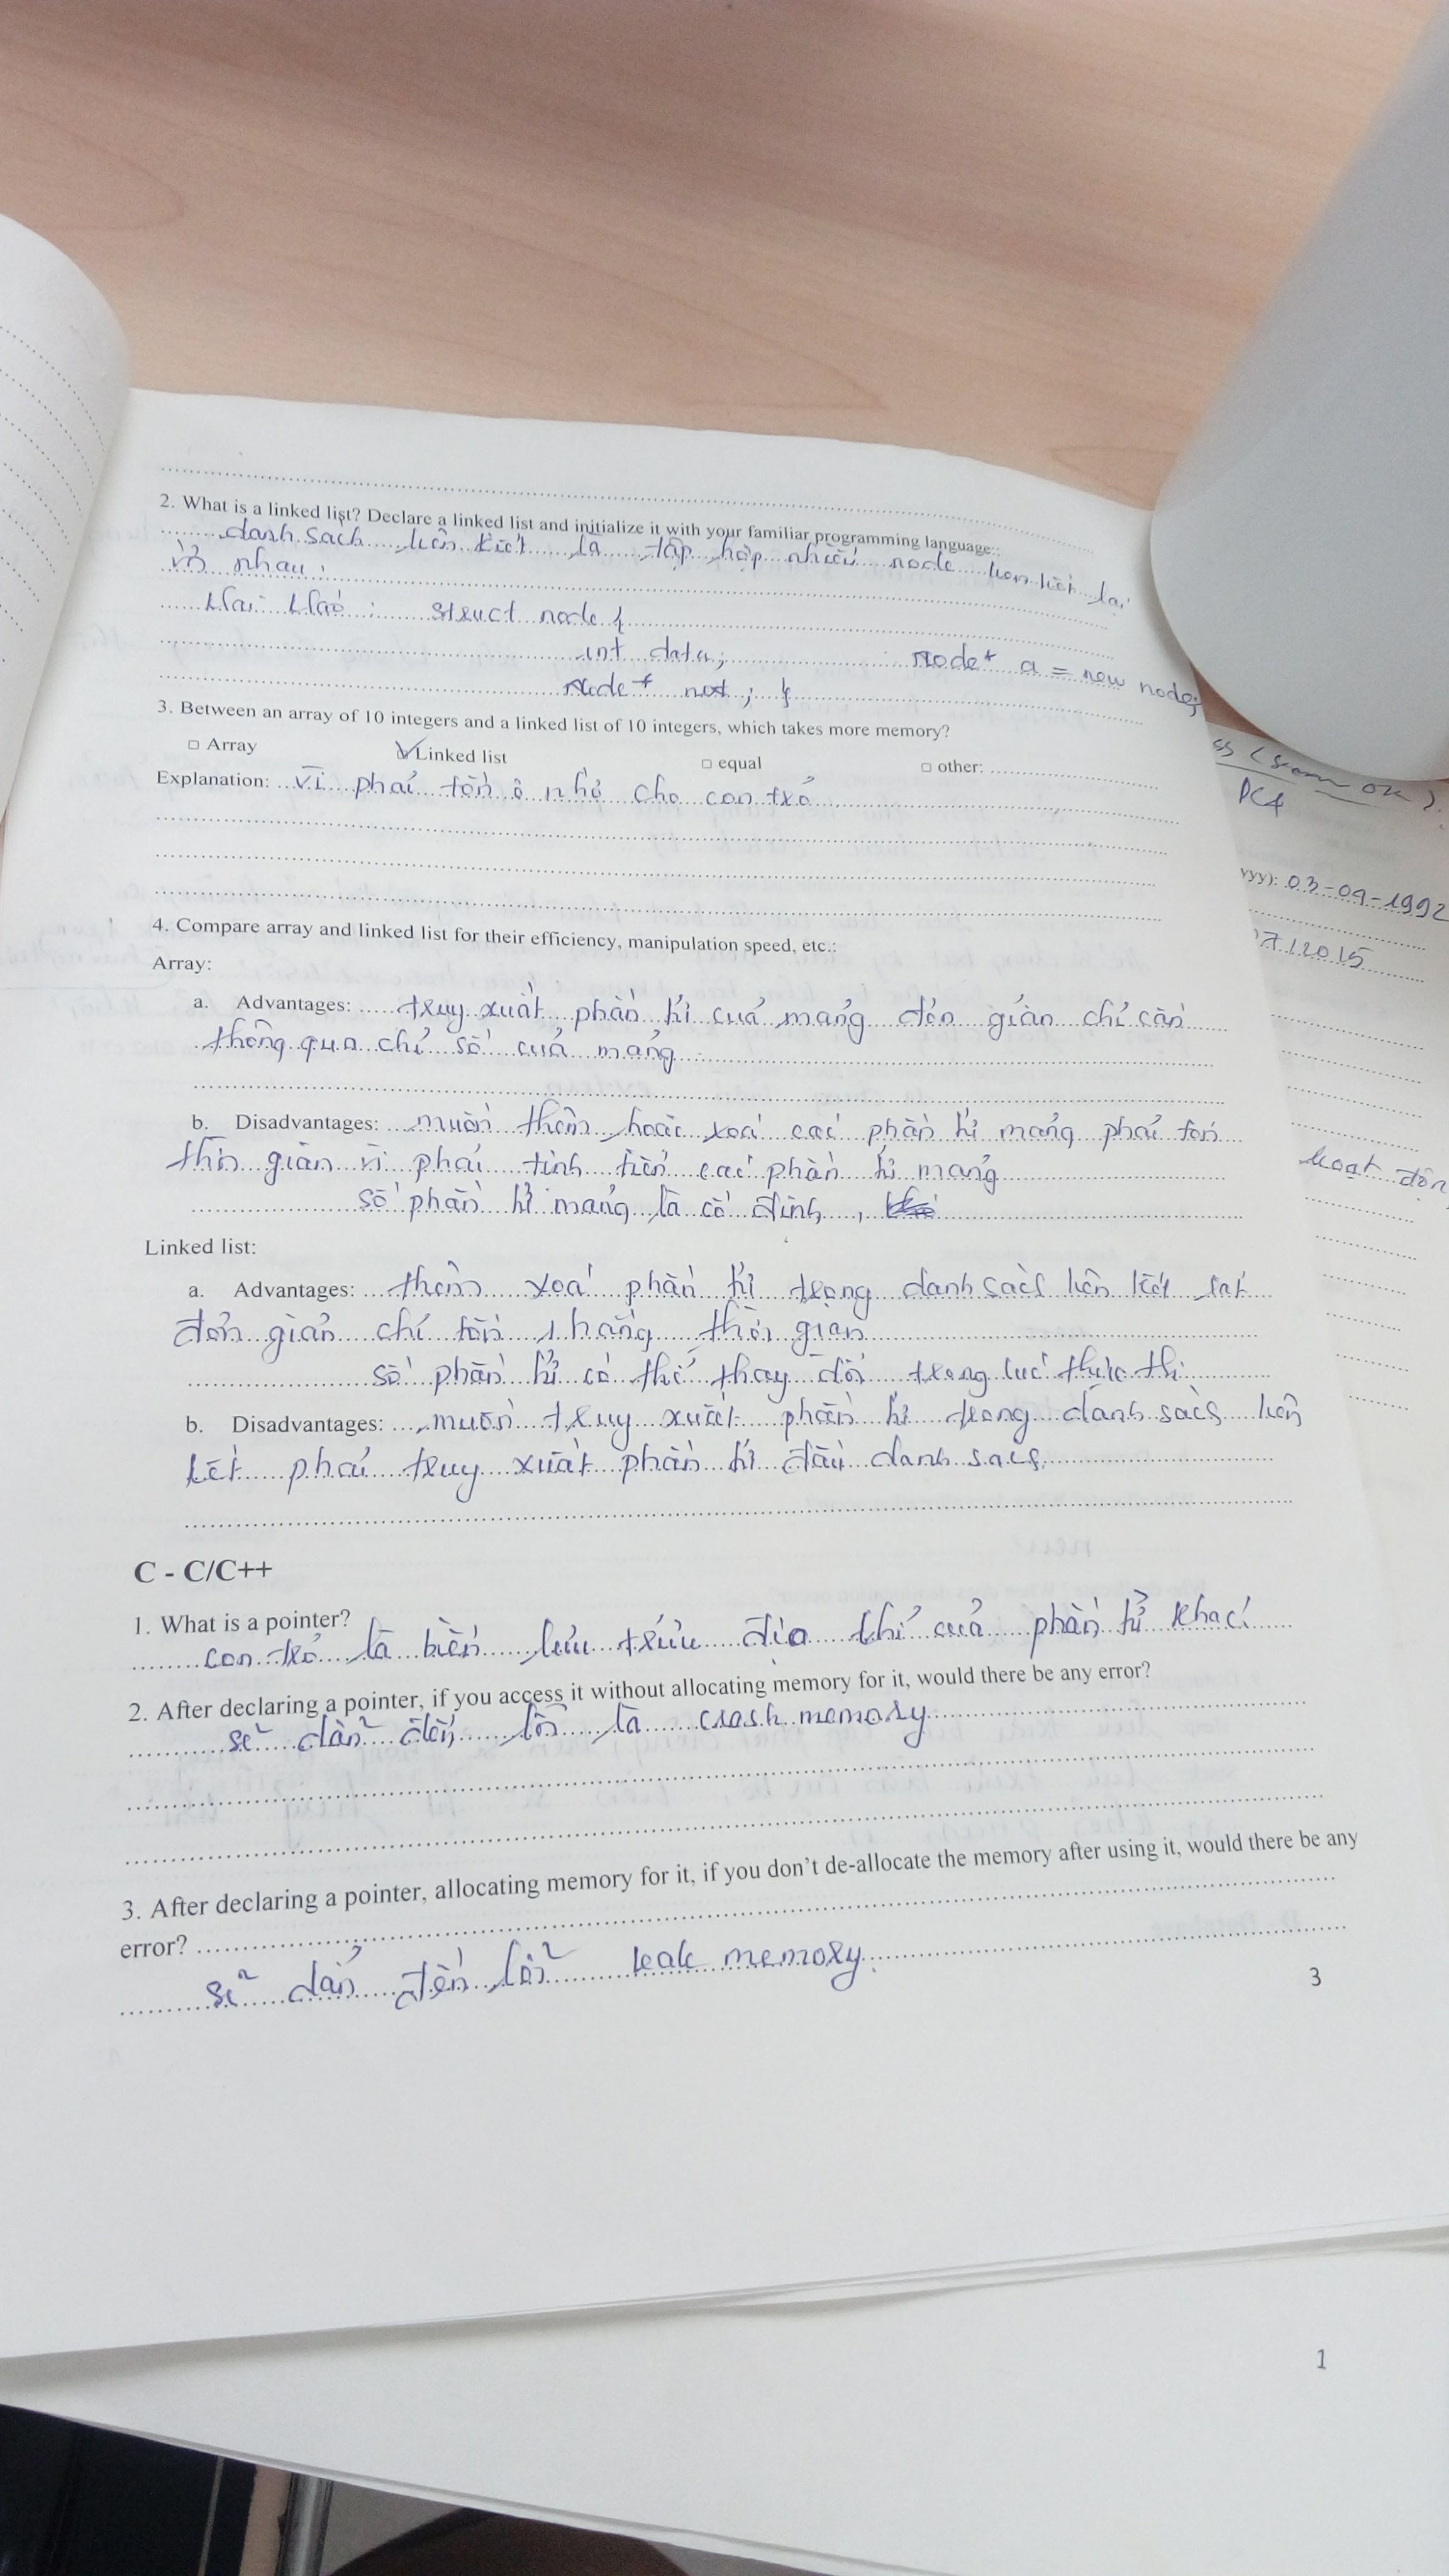 2. What is a linked list? Declare a linked list and initialize it with your familiar programming language:
danh sách liên kết là tập hợp nhiều node liên kết lại
với nhau.
Khai báo: struct node {
int data;
Node* a = new node;
Node* next; }
3. Between an array of 10 integers and a linked list of 10 integers, which takes more memory?
□ Array ☑ Linked list □ equal □ other:
Explanation: vì phải tốn ô nhớ cho con trỏ
4. Compare array and linked list for their efficiency, manipulation speed, etc.:
Array:
a. Advantages: truy xuất phần tử của mảng đơn giản chỉ cần
thông qua chỉ số của mảng
b. Disadvantages: muốn thêm hoặc xoá các phần tử mảng phải tốn
thời gian vì phải tịnh tiến các phần tử mảng
số phần tử mảng là cố định,
Linked list:
a. Advantages: thêm xoá phần tử trong danh sách liên kết rất
đơn giản chỉ tốn khoảng thời gian
số phần tử có thể thay đổi trong lúc thực thi
b. Disadvantages: muốn truy xuất phần tử trong danh sách liên
kết phải truy xuất phần tử đầu danh sách.
C - C/C++
1. What is a pointer?
con trỏ là biến lưu trữ địa chỉ của phần tử khác
2. After declaring a pointer, if you access it without allocating memory for it, would there be any error?
sẽ dẫn đến lỗi là crash memory
3. After declaring a pointer, allocating memory for it, if you don't de-allocate the memory after using it, would there be any
error?
sẽ dẫn đến lỗi leak memory.
3
DC4
yyy): 03-09-1992
712015
hoạt độn
1